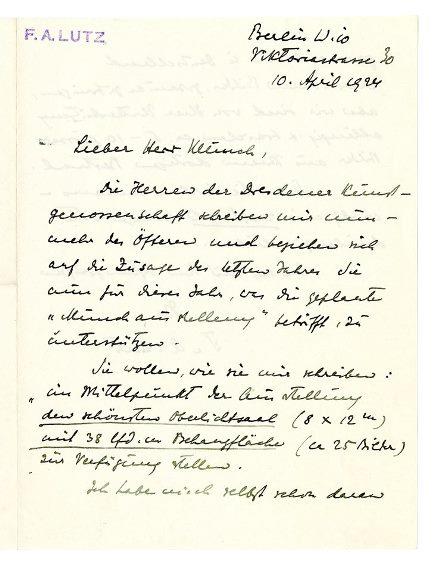 F. A. LUTZ
Berlin W. 10
Viktoriastrasse 30
10. April 1924
Lieber Herr Munch,
Die Herren der Dresdener Kunst-
genossenschaft schreiben mir nun-
mehr des Öfteren und beziehen sich
auf die Zusage des letzten Jahres Sie
nun für dieses Jahr, was die geplante
„Munch ausstellung" betrifft, zu
unterstützen.
Sie wollen, wie sie mir schreiben:
„im Mittelpunkt der Ausstellung
den schönsten Oberlichtsaal (8 x 12 m)
mit 38 lfd. m Behangfläche (ca 25 Bilder)
zur Verfügung stellen.
Ich habe mich selbst schon daran